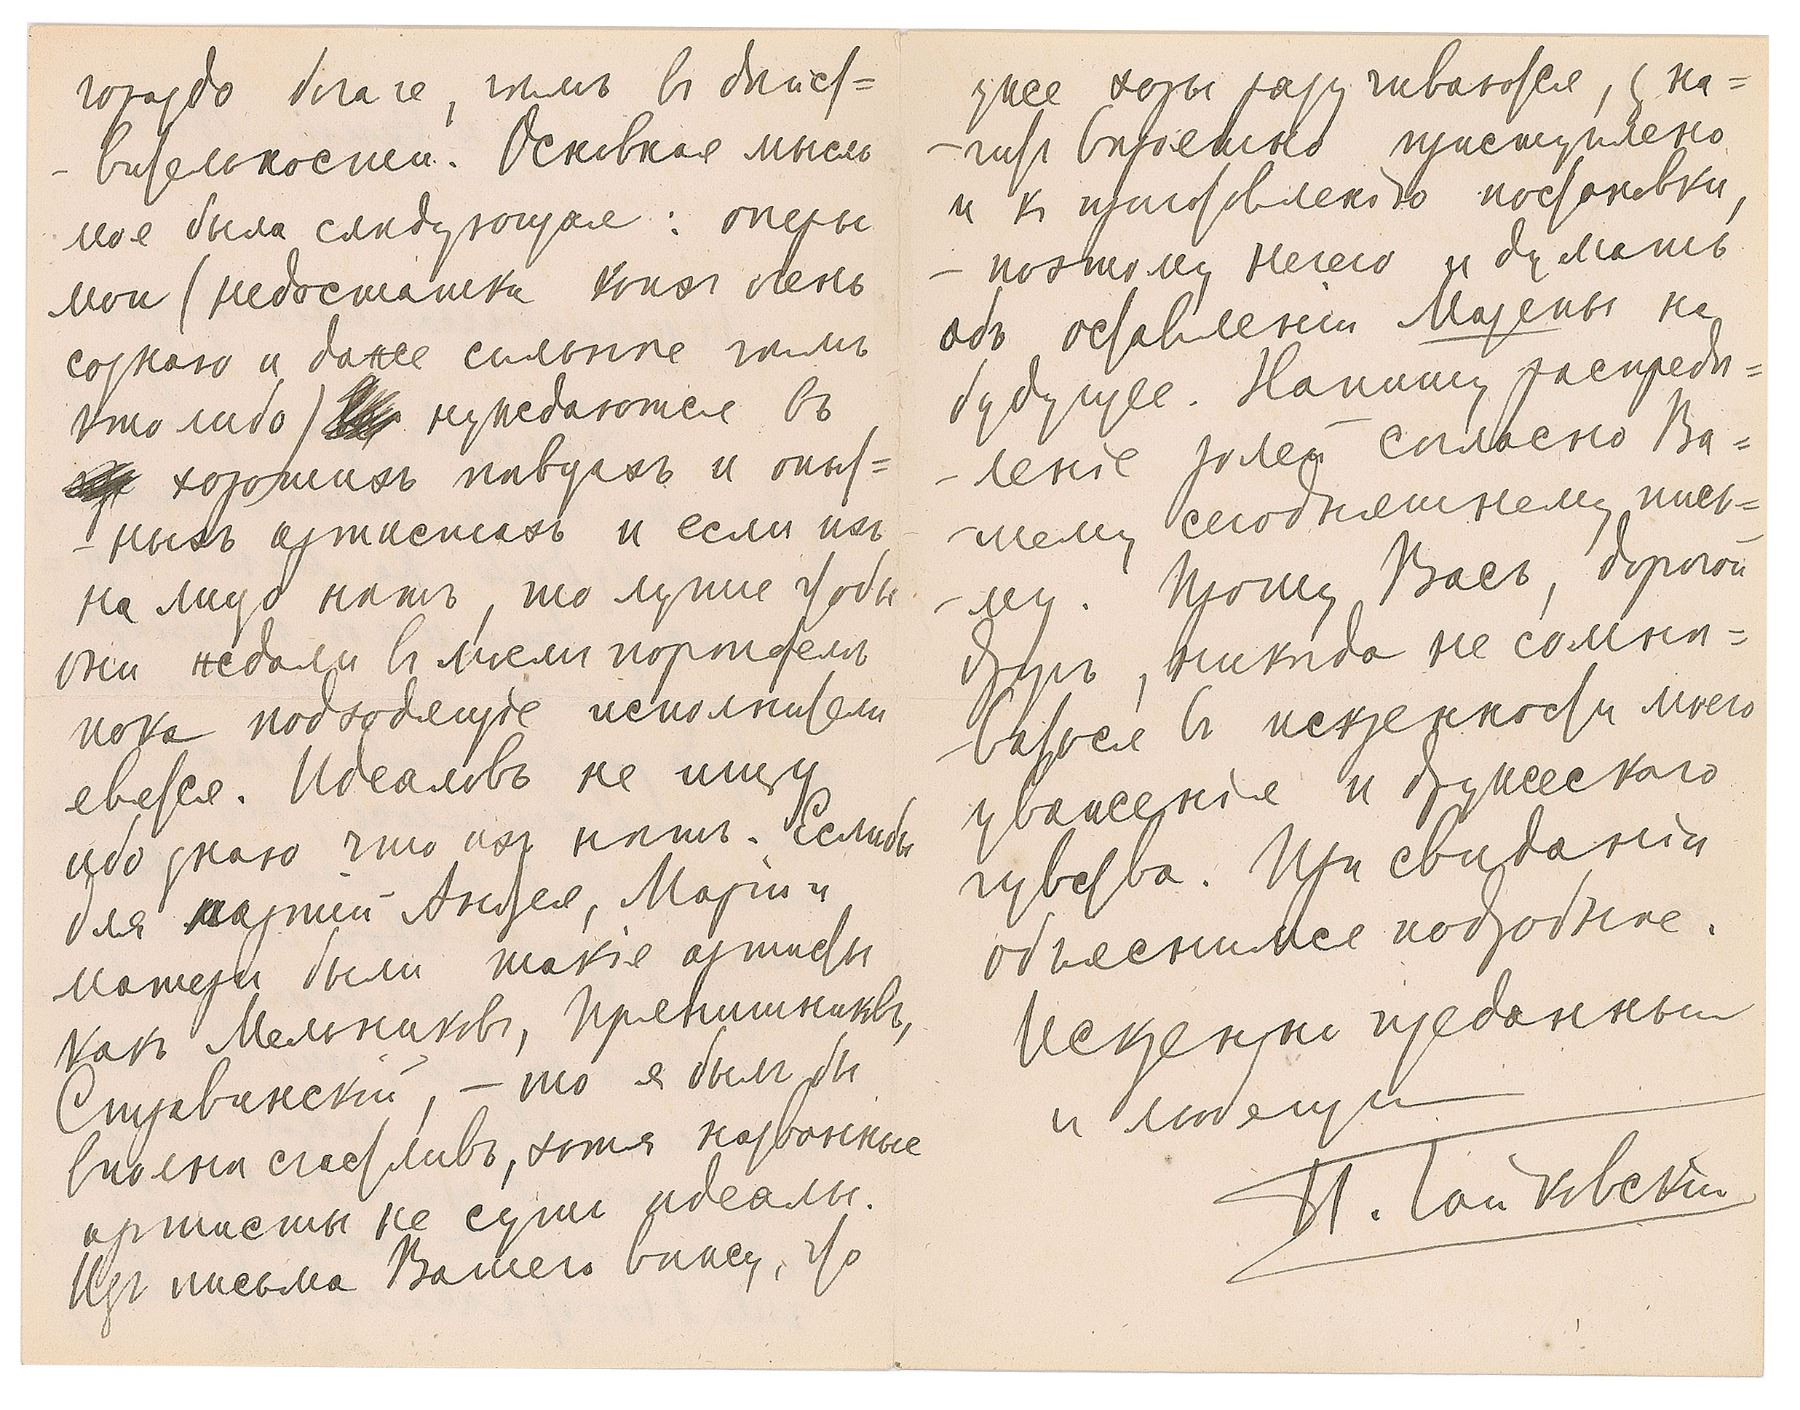 гораздо благе, чѣмъ въ дѣйст=
-вительности. Основная мысль
моя была слѣдующая: оперы
мои (недостатки коихъ очень
сознаю и даже сильнѣе чѣмъ
кто либо) нуждаются въ
хорошихъ пѣвцахъ и опыт=
-ныхъ артистахъ и если ихъ
на лицо нѣтъ, то лучше чтобы
они ждали въ моемъ портфелѣ
пока подходящіе исполнители
явятся. Идеаловъ не ищу
ибо знаю что ихъ нѣтъ. Еслибы
для партій Андрея, Маріи и
матери были такіе артисты
какъ Мельниковъ, Прянишниковъ,
Стравинскій, – то я былъ бы
вполнѣ счастливъ, хотя названные
артисты не суть идеалы.
Изъ письма Вашего вижу, что
уже хоры разучиваются, зна=
-читъ вѣроятно приступлено
и къ приготовленію постановки,
– поэтому нечего и думать
объ оставленіи Мазепы на
будущее. Напишу распредѣ=
-леніе ролей согласно Ва=
-шему сегодняшнему пись=
-му. Прошу Васъ, дорогой
другъ, никогда не сомнѣ=
-ваться въ искренности моего
уваженія и дружескаго
чувства. При свиданіи
объяснимся подробнѣе.
Искренно преданный
и любящій
П. Чайковскій